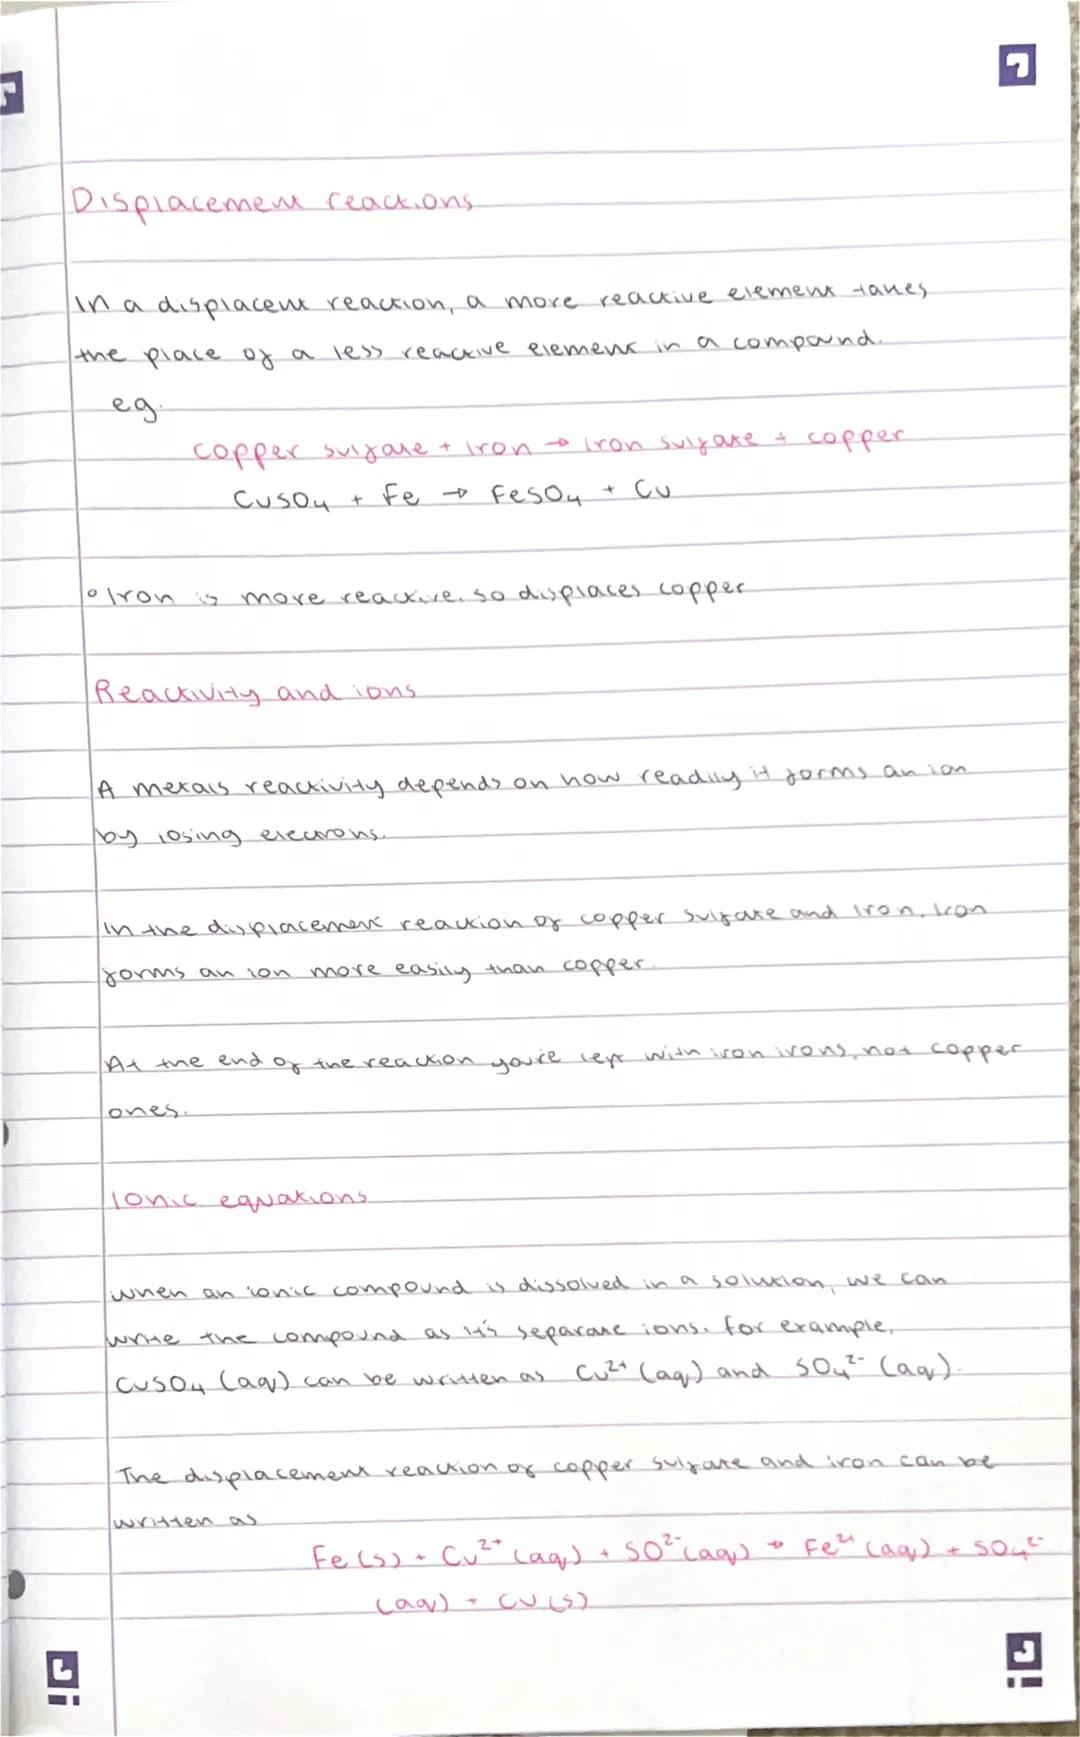 Displacement reactions
In a displacent reaction, a more reactive element takes
the place of a less reactive element in a compound.
eg.
copper sulfate + iron → iron sulfate + copper
CuSO₄ + Fe → FeSO₄ + Cu
° Iron is more reactive, so displaces copper
Reactivity and ions
A metals reactivity depends on how readily it forms an ion
by losing electrons.
In the displacement reaction of copper sulfate and iron, iron
forms an ion more easily than copper.
At the end of the reaction you're left with iron irons, not copper
ones.
Ionic equations
when an ionic compound is dissolved in a solution, we can
write the compound as it's separate ions. for example,
CuSO₄ (aq) can be written as Cu²⁺ (aq) and SO₄²⁻ (aq).
The displacement reaction of copper sulfate and iron can be
written as
Fe (s) + Cu²⁺ (aq) + SO²⁻ (aq) → Fe²⁺ (aq) + SO₄²⁻
(aq) + Cu (s)